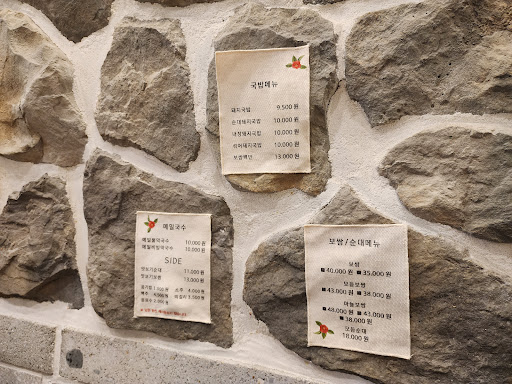 국밥메뉴
돼지국밥 9,500원
순대돼지국밥 10,000원
내장돼지국밥 10,000원
섞어돼지국밥 10,000원
보쌈백반 13,000원
메밀국수
메밀물막국수 10,000원
메밀비빔막국수 10,000원
SIDE
맛보기순대 11,000원
맛보기모듬 13,000원
공기밥 1,000원 소주 4,000원
맥주 원 막걸리 3,000원
음료수 원
보쌈/순대메뉴
보쌈
40,000원 35,000원
모듬보쌈
43,000원 38,000원
마늘보쌈
48,000원 43,000원
38,000원
모듬순대
18,000원